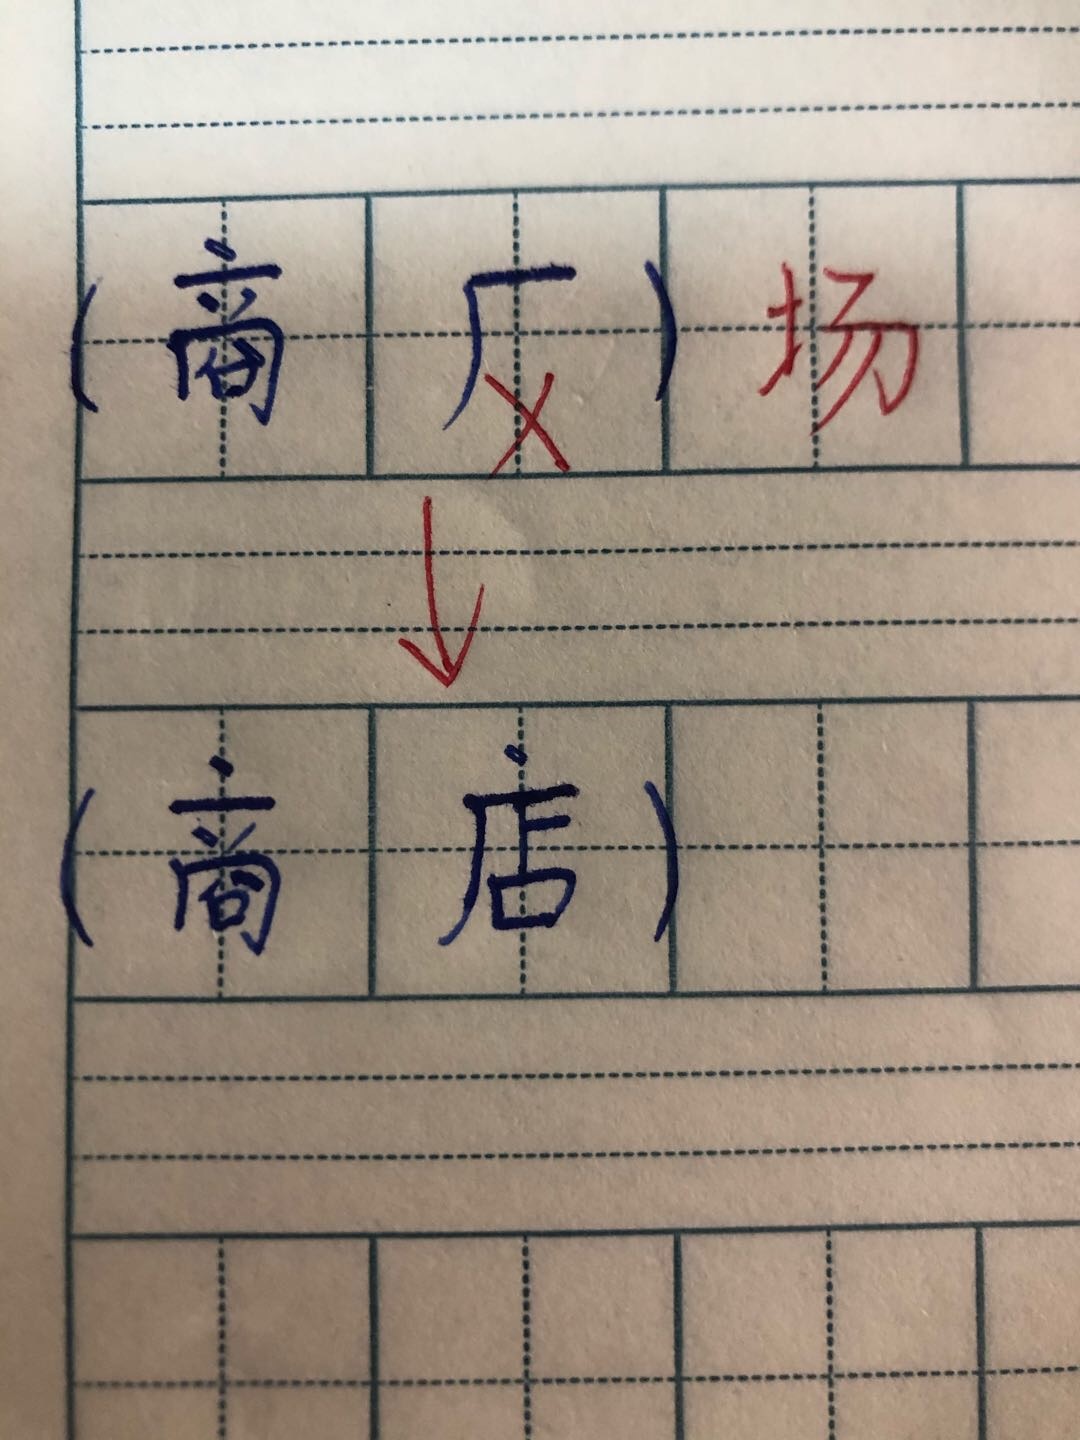 (商厂)场
(商店)